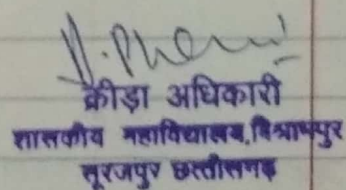 क्रीड़ा अधिकारी
शासकीय महाविद्यालय, विश्रामपुर
सूरजपुर छत्तीसगढ़